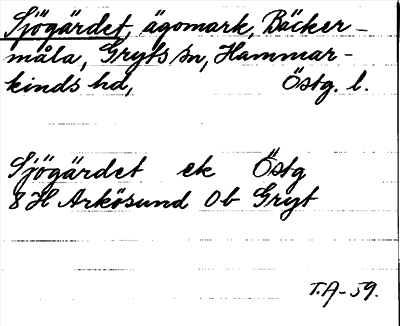 Sjögärdet, ägomark, Bäcker-
måla, Gryts sn, Hammar-
kinds hd, Östg. l.
Sjögärdet ek Östg
8H Arkösund 0b Gryt
T.A-59.